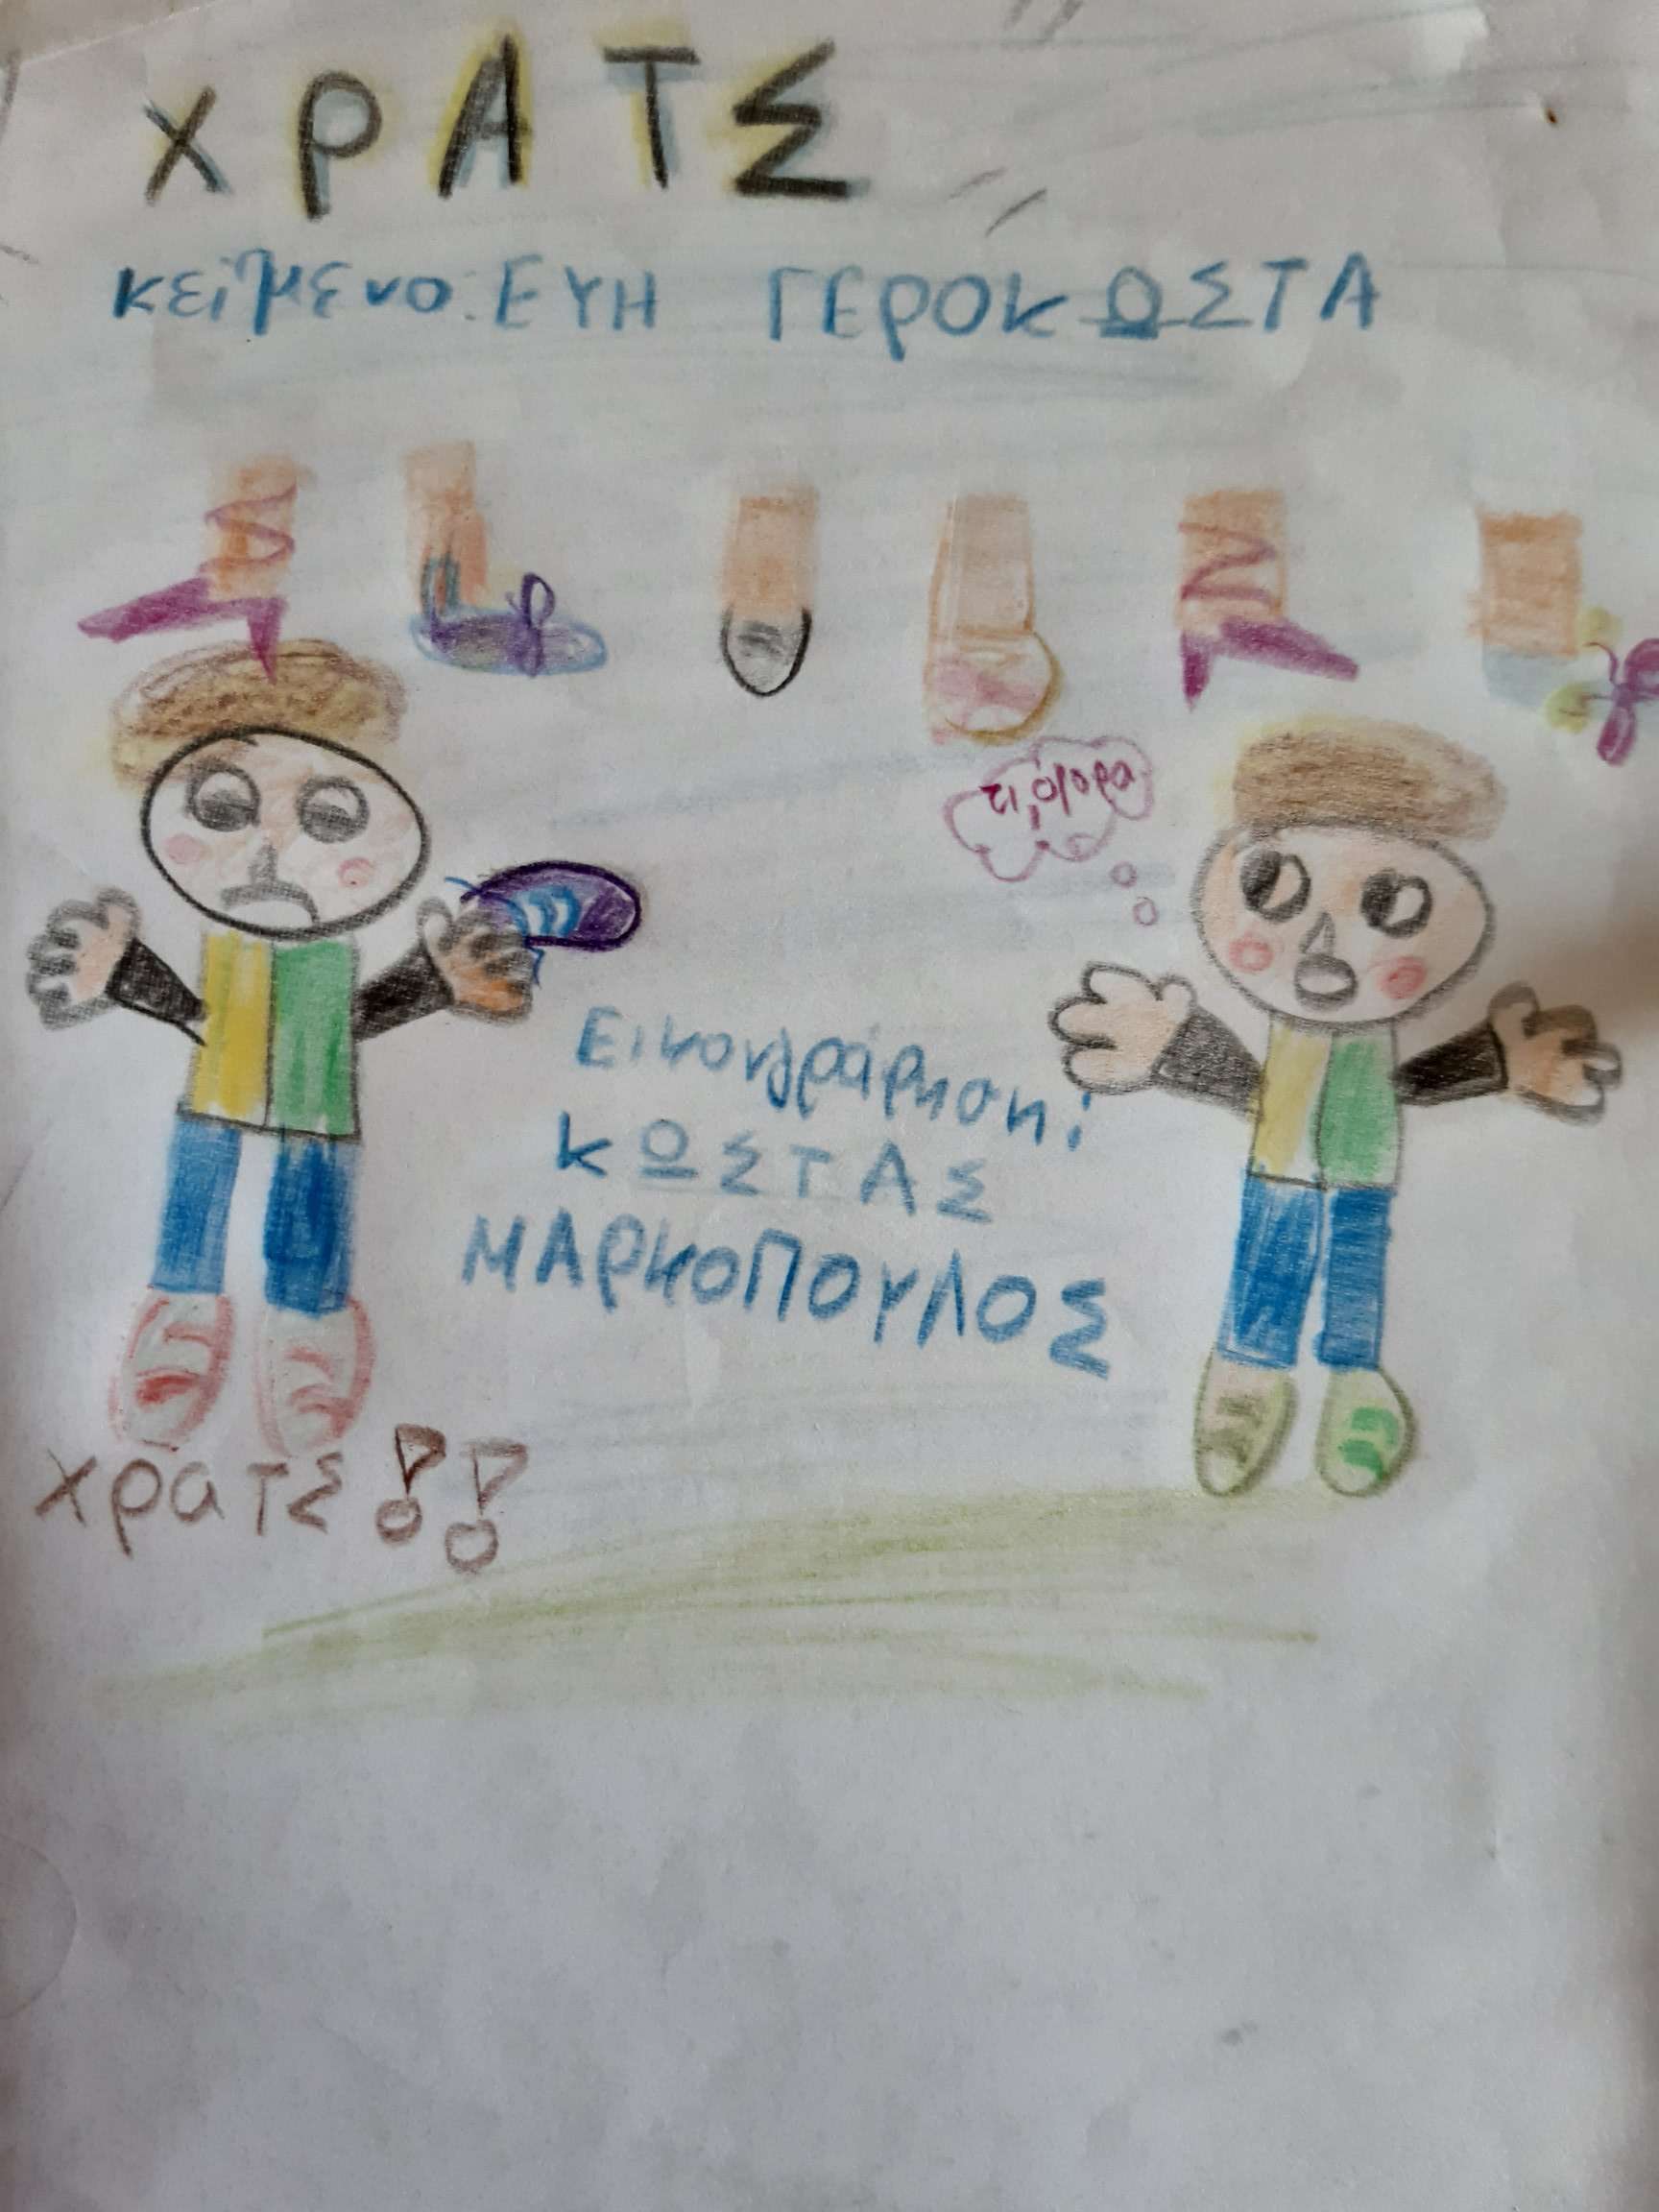 ΧΡΑΤΣ
κείμενο: ΕΥΗ ΓΕΡΟΚΩΣΤΑ
τι, άγορα
Εικονγράφηση:
ΚΩΣΤΑΣ
ΜΑΡΚΟΠΟΥΛΟΣ
χρατς!!